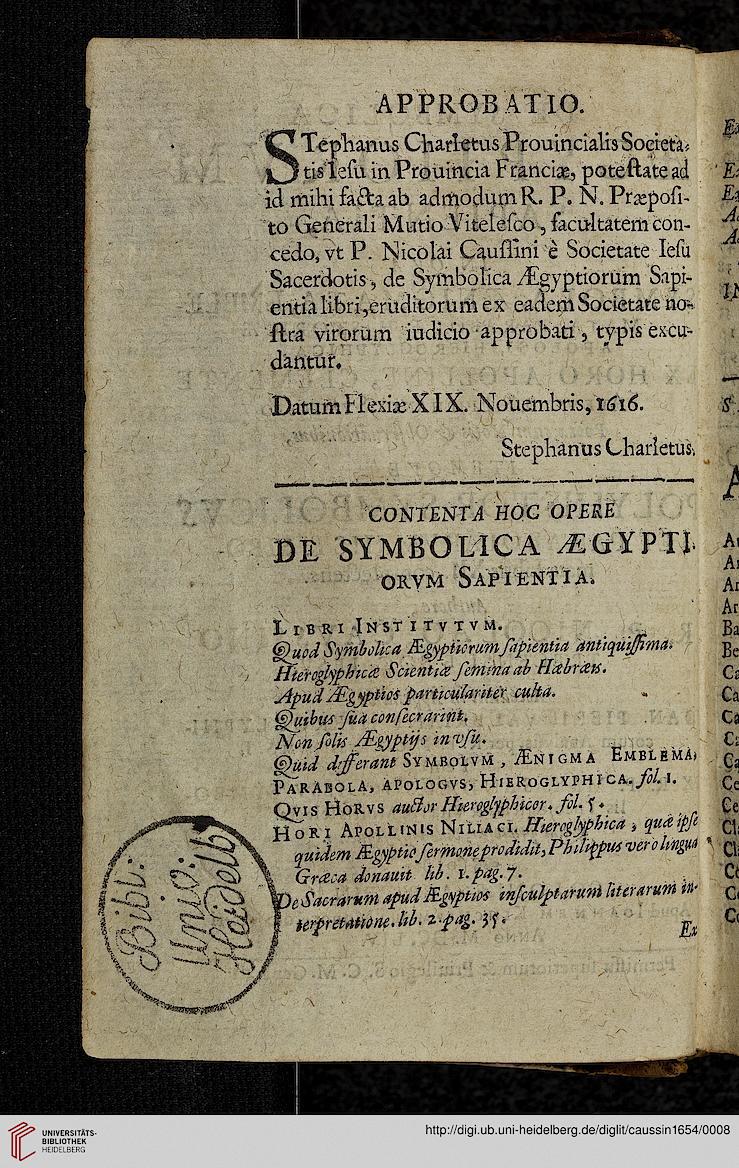 APPROBATIO.
STephanus Charletus Prouincialis Societa-
tis Iesu in Prouincia Franciæ, potestate ad
id mihi facta ab admodum R. P. N. Præposi-
to Generali Mutio Vitelesco, facultatem con-
cedo, vt P. Nicolai Caussini è Societate Iesu
Sacerdotis, de Symbolica Ægyptiorum Sapi-
entia libri, eruditorum ex eadem Societate no-
stra virorum iudicio approbati, typis excu-
dantur.
Datum Flexiæ XIX. Nouembris, 1616.
Stephanus Charletus.
CONTENTA HOC OPERE
DE SYMBOLICA ÆGYPTI-
ORVM SAPIENTIA.
LIBRI INSTITVTVM.
Quod Symbolica Ægyptiorum sapientia antiquissima.
Hieroglyphicæ Scientiæ semina ab Hæbræis.
Apud Ægyptios particulariter culta.
Quibus sua consecrarint.
Non solis Ægyptijs in vsu.
Quid differant SYMBOLVM, ÆNIGMA EMBLEMA,
PARABOLA, APOLOGVS, HIEROGLYPHICA. fol. 1.
QVIS HORVS auctor Hieroglyphicor. fol. 5.
HORI APOLLINIS NILIACI. Hieroglyphica, quæ ipse
quidem Ægyptio sermone prodidit, Philippus vero lingua
Græca donauit lib. 1. pag. 7.
De Sacrarum apud Ægyptios insculptarum literarum in-
terpretatione. lib. 2. pag. 35.
Ex
Bibl:
Univ:
Heidelb
UNIVERSITÄTS-
BIBLIOTHEK
HEIDELBERG
http://digi.ub.uni-heidelberg.de/diglit/caussin1654/0008